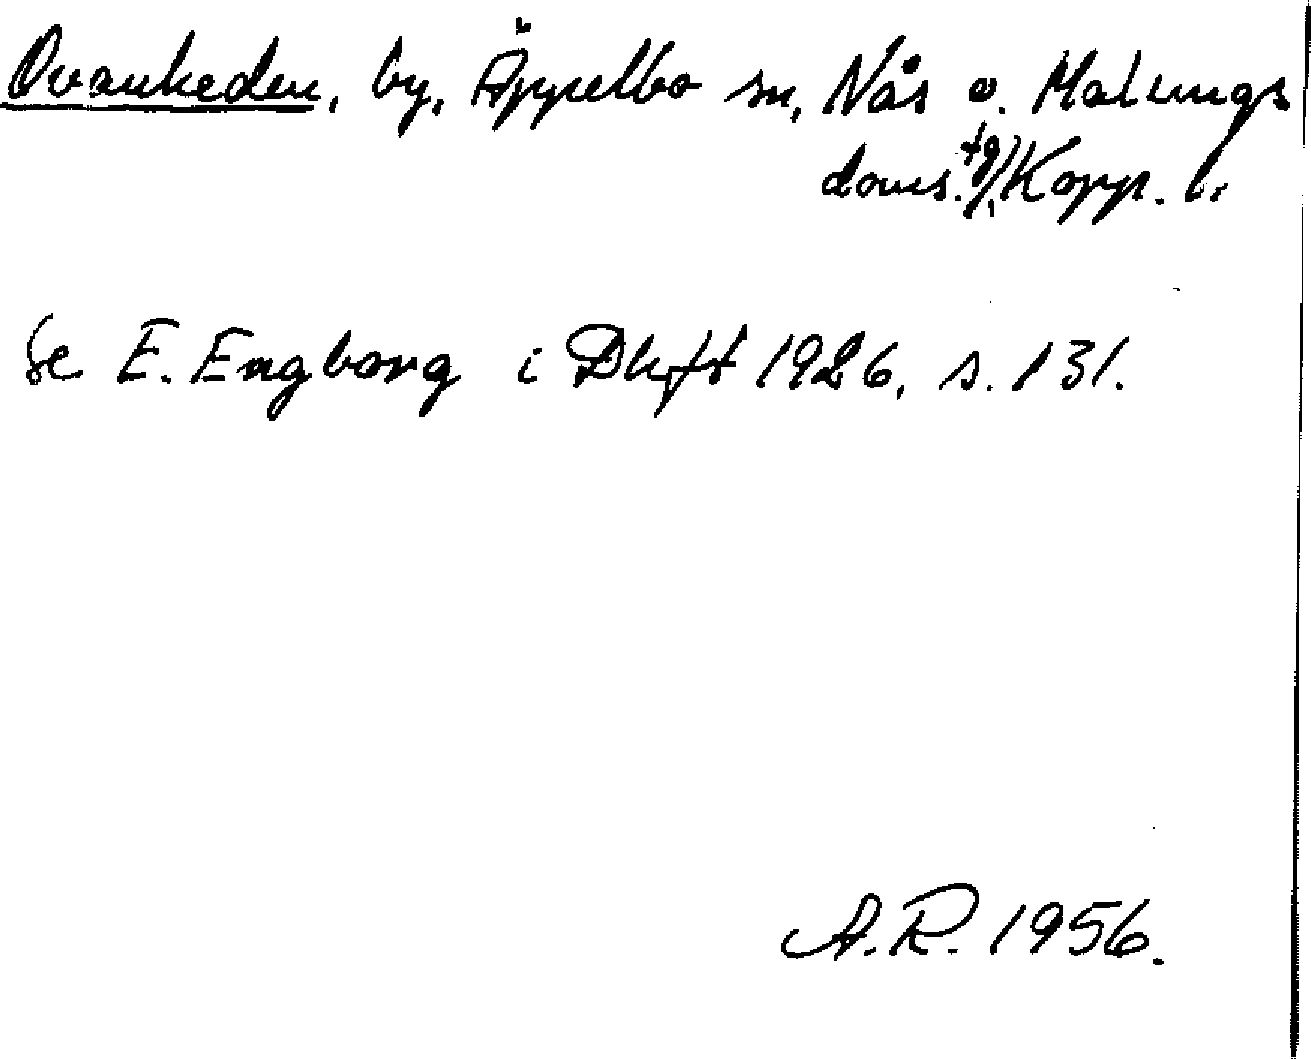 Ovanheden, by, Äppelbo sn, Nås o. Malungs
doms.tg, Kopp. l.
Se E. Engborg i Dlhft 1926, s. 131.
A.R. 1956.